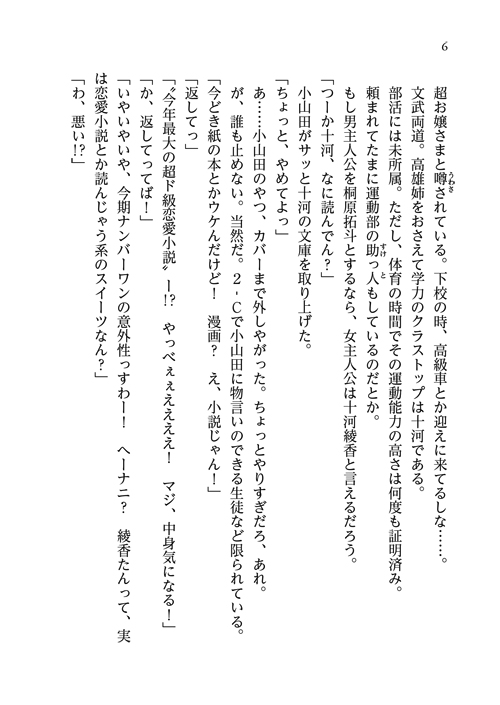 6
超お嬢さまと噂されている。下校の時、高級車とか迎えに来てるしな……。
文武両道。高雄姉をおさえて学力のクラストップは十河である。
部活には未所属。ただし、体育の時間でその運動能力の高さは何度も証明済み。
頼まれてたまに運動部の助っ人もしているのだとか。
もし男主人公を桐原拓斗とするなら、女主人公は十河綾香と言えるだろう。
「つーか十河、なに読んでん？」
小山田がサッと十河の文庫を取り上げた。
「ちょっと、やめてよっ」
あ……小山田のやつ、カバーまで外しやがった。ちょっとやりすぎだろ、あれ。
が、誰も止めない。当然だ。２‐Ｃで小山田に物言いのできる生徒など限られている。
「今どき紙の本とかウケんだけど！　漫画？　え、小説じゃん！」
「返してっ」
「〝今年最大の超ド級恋愛小説〟ー!?　やっべぇぇええええ！　マジ、中身気になる！」
「か、返してってば！」
「いやいやいや、今期ナンバーワンの意外性っすわー！　ヘーナニ？　綾香たんって、実
は恋愛小説とか読んじゃう系のスイーツなん？」
「わ、悪い!?」